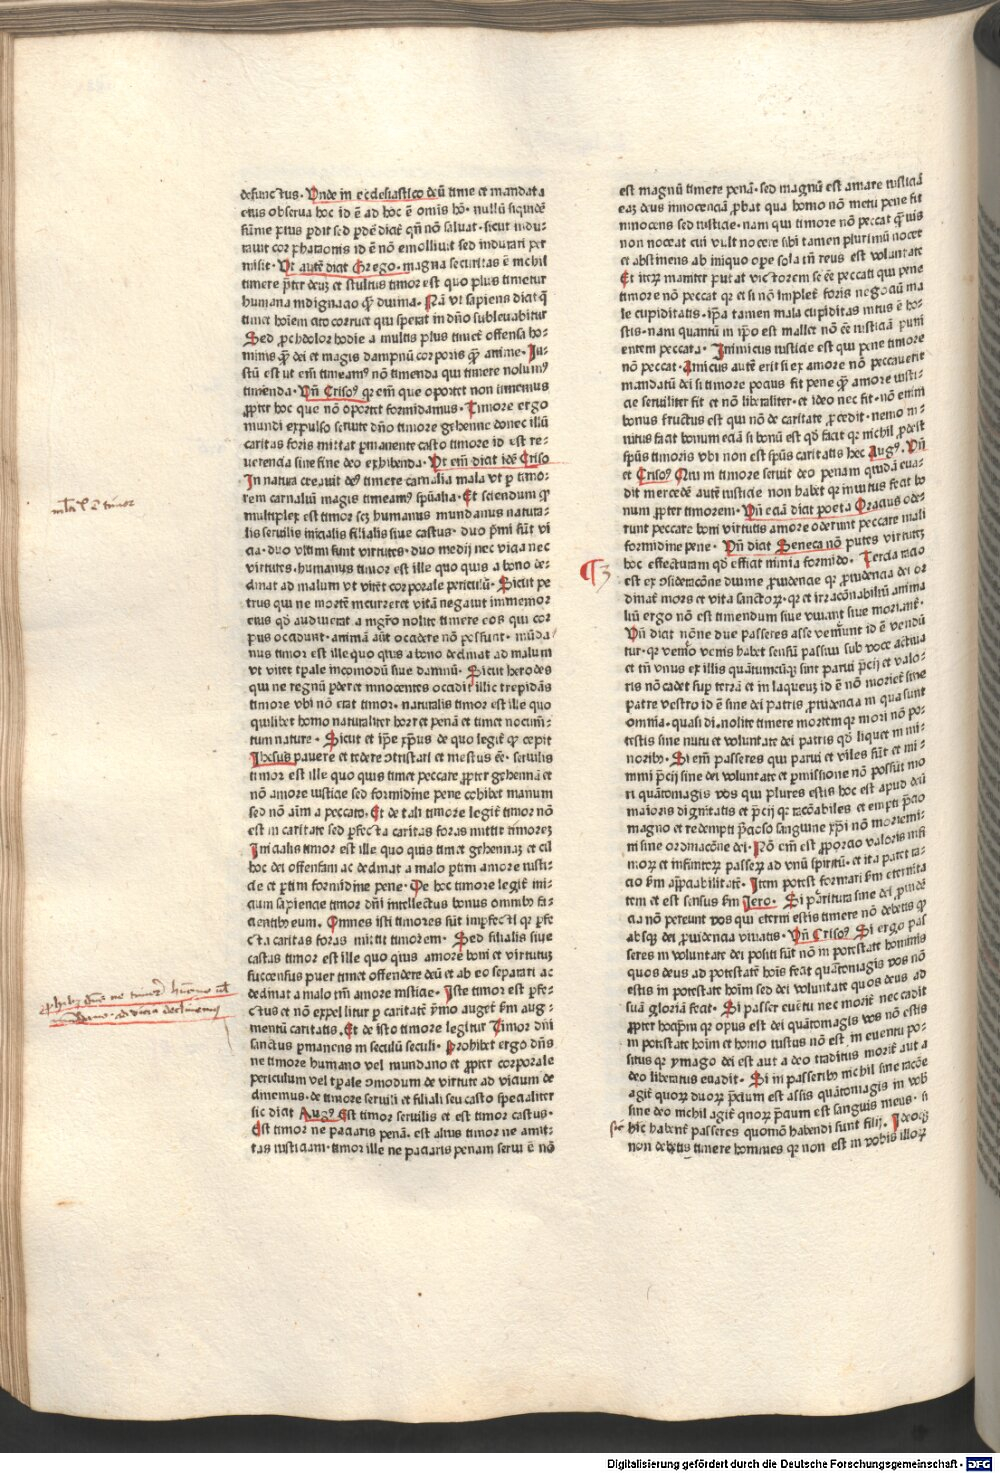 defunctus. Vnde in ecclesiastico deū time et mandata
eius obserua hoc id ē ad hoc ē omis hō. nullū siquidē
sūme prius pdit sed pdē dicit qn̄ nō saluat. sicut indu-
rauit cor pharaonis id ē nō emolliuit sed indurari per
misit. Vt autē dicit Grego. magna securitas ē nichil
timere pter deuꝫ et stultus timor est quo plus timetur
humana indignacio qꝫ diuina. Nā vt sapiens dicit q̄
timet hoīem cito corruet qui sperat in dn̄o subleuabitur
Sed ꝓchdolor hodie a multis plus timet᷑ offensa ho-
minis qꝫ dei et magis dampnū corporis qꝫ anime. Iu-
stū est ut em̄ timeamꝰ nō timenda qui timere nolumꝰ
timenda. Vn̄ Crisoꝰ qꝛ em̄ que oportet non timemus
ꝓpter hoc que nō oportet formidamus. Timore ergo
mundi expulso seruite dn̄o timore gehenne donec illū
caritas foris mittat pmanente casto timore id est re-
uerencia sine fine deo exhibenda. Vt em̄ dicit idē Criso
In natura creauit deꝰ timere carnalia mala vt p timo-
rem carnaliū magis timeamꝰ spūalia. Et sciendum qꝫ
multiplex est timor scꝫ humanus mundanus natura-
lis seruilis inicialis filialis siue castus. duo pmi sūt vi
cia. duo vltimi sunt virtutes. duo medij nec vicia nec
virtutes. humanus timor est ille quo quis a bono de-
clinat ad malum vt vitet corporale periculū. Sicut pe
trus qui ne mortē incurreret vitā negauit immemor
eius qd̓ audiuerat a mgr̄o nolite timere eos qui cor
pus occidunt. animā aut̄ occidere nō possunt. mūda
nus timor est ille quo quis a bono declinat ad malum
vt vitet tpale incomodū siue damnū. Sicut herodes
qui ne regnū pderet innocentes occidit illic trepidās
timore vbi nō erat timor. naturalis timor est ille quo
quilibet homo naturaliter horret penā et timet nocum̄-
tum nature. Sicut et ip̄e xp̄us de quo legit᷑ qꝫ cepit
Ihesus pauere et tedere ↄtristari et mestus eē. seruilis
timor est ille quo quis timet peccare ꝓpter gehennā et
nō amore iusticie sed formidine pene cohibet manum
sed nō aīm a peccato. Et de tali timore legit᷑ timor nō
est in caritate sed pfecta caritas foras mittit timoreꝫ
Inicialis timor est ille quo quis timet gehennaꝫ et cū
hoc dei offensam ac declinat a malo ptim amore iusti-
cie et ptim formidine pene. De hoc timore legit᷑ ini-
cium sapiencie timor dn̄i intellectus bonus omnibꝫ fa-
cientibꝫ eum. Omnes isti timores sūt impfecti qꝛ pfe
cta caritas foras mittit timorem. Sed filialis siue
castus timor est ille quo quis amore boni et virtutuꝫ
succensus puer timet offendere deū et ab eo separari ac
declinat a malo tm̄ amore iusticie. Iste timor est pfe-
ctus et nō expellitur p caritatē ymo auget᷑ ẜm aug-
mentū caritatis. Et de isto timore legitur Timor dn̄i
sanctus pmanens in seculū seculi. Prohibet ergo dn̄s
ne timore humano vel mundano et ꝓpter corporale
periculum vel tpale ↄmodum de virtute ad vicium de
clinemus. de timore seruili et filiali seu casto specialiter
sic dicit Augꝰ Est timor seruilis et est timor castus.
Est timor ne paciaris penā. est alius timor ne amit-
tas iusticiam. timor ille ne paciaris penam serui ē nō
est magnū timere penā. sed magnū est amare iusticiā
eaꝫ deus innocenciā ꝓbat qua homo nō metu pene fit
innocens sed iusticie. nam qui timore nō peccat qꝫuis
non noceat cui vult nocere sibi tamen plurimū nocet
et abstinens ab iniquo ope sola tn̄ reus est voluntate
Et iterꝫ inaniter putat victorem se eē peccati qui pene
timore nō peccat qꝛ et si nō implet᷑ foris negociū ma
le cupiditatis. ip̄a tamen mala cupiditas intus ē ho-
stis. nam quantū in ip̄o est mallet nō eē iusticiā puni
entem peccata. Inimicus iusticie est qui pene timore
nō peccat. Amicus autē erit si ex amore nō peccauerit
mandatū dei si timore pocius fit pene qꝫ amore iusti-
cie seruiliter fit et nō libraliter. et ideo nec fit. nō enim
bonus fructus est qui nō de caritate ꝓcedit. nemo in-
uitus facit bonum eciā si bonū est qd̓ facit qꝛ nichil ꝓdest
spūs timoris vbi non est spūs caritatis hec Augꝰ. Vn̄
et Crisoꝰ Qui in timore seruit deo penam quidā eua-
dit mercedē autē iusticie non habet qꝛ inuitus fecit bo
num ꝓpter timorem. Vn̄ eciā dicit poeta Oracius ode-
runt peccare boni virtutis amore oderunt peccare mali
formidine pene. Vn̄ dicit Seneca nō putes virtuteꝫ
hoc effecturam qd̓ efficit nimia formido. Tercia racio
est ex ↄsideracōne diuine ꝓuidencie qꝛ ꝓuidencia dei or
dinat᷑ mors et vita sanctoꝝ. qꝛ et irracōnabiliū anima
liū ergo nō est timendum siue viuant siue moriant᷑.
Vn̄ dicit nōne duo passeres asse veniunt id ē vendū
tur. qꝛ venio venis habet sensū passiui sub voce actiua
et tn̄ vnus ex illis quātumcūqꝫ sint parui pcij et valo-
ris nō cadet sup terrā et in laqueuꝫ id ē nō moriet᷑ sine
patre vestro id ē sine dei patris ꝓuidencia in qua sunt
omnia. quasi di. nolite timere mortem qꝛ mori nō po-
testis sine nutu et voluntate dei patris qd̓ liquet in mi-
noribꝫ. Si em̄ passeres qui parui et viles sūt et mi-
nimi pcij sine dei voluntate et pmissione nō possūt mo
ri quātomagis vos qui plures estis hoc est apud deū
maioris dignitatis et pcij qꝛ racōabiles et empti pcio
magno et redempti pcioso sanguine xp̄i nō moriemi-
ni sine ordinacōne dei. Nō em̄ est ꝓporcio valoris infi
moꝝ et infimioꝝ passeꝝ ad vnū spiritū. et ita patet ra-
cio ẜm app̄ciabilitatē. Item potest formari ẜm eternita
tem et est sensus ẜm Iero. Si pitura sine dei ꝓuidē
cia nō pereunt vos qui eterni estis timere nō debetis qꝫ
absqꝫ dei ꝓuidencia viuatis. Vn̄ Crisoꝰ Si ergo pas
seres in voluntate dei positi sūt nō in potestate hominis
quos deus ad potestatē hoīs fecit quātomagis vos nō
estis in potestate hoīm sed dei voluntate quos deus ad
suā gloriā fecit. Si passer euētu nec morit᷑ nec cadit
ꝓpter hoc qꝛ opus est dei quātomagis vos nō estis
in potestate hoīm et homo iustus nō est in euentu po-
situs qꝛ ymago dei est aut a deo traditus morit᷑ aut a
deo liberatus euadit. Si in passeribꝫ nichil sine racōe
agit᷑ quoꝝ duoꝝ pcium est assis quātomagis in vobis
sine deo nichil agit᷑ quoꝝ pcium est sanguis meus. si
hic habent᷑ passeres quomō habendi sunt filij. Ideoqꝫ
non debetis timere homines qꝛ non est in vobis illoꝝ
timor
Digitalisierung gefördert durch die Deutsche Forschungsgemeinschaft - DFG